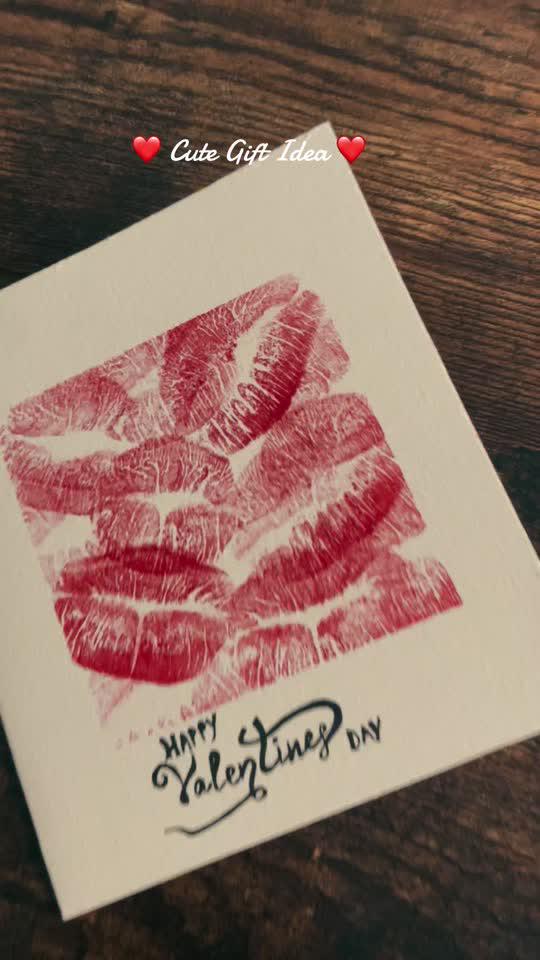 ❤️ Cute Gift Idea ❤️
HAPPY
Valentines DAY